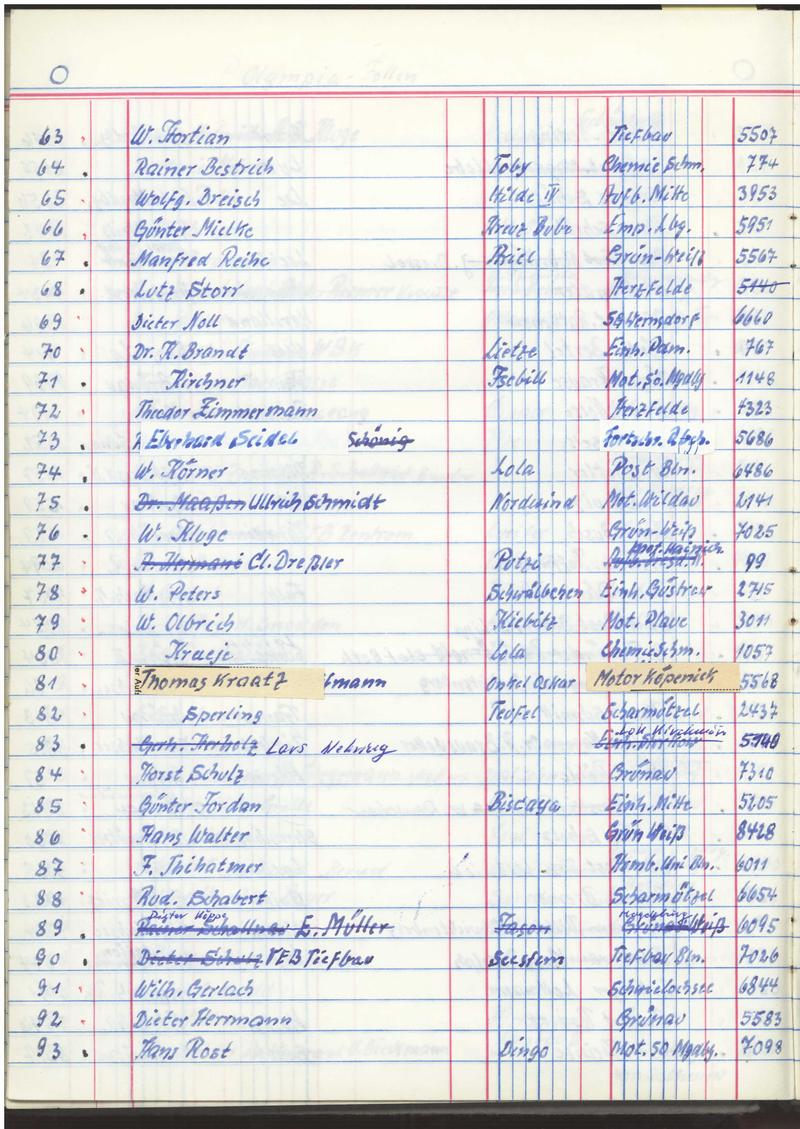 63 W. Fortian Tiefbau 5507
64 Rainer Bestrich Toby Chemie Schm. 774
65 Wolfg. Dreisch Hilde IV Aufb. Mitte 3953
66 Günter Mielke Kreuz Bube Emp. Lbg. 5951
67 Manfred Reihe Briel Grün-Weiß 5567
68 Lutz Storr Herzfelde 5140
69 Dieter Noll SG Wernsdorf 6660
70 Dr. K. Brandt Lietze Einh. Pdm. 767
71 Kirchner Isebill Mot. So. Mgdbg 1148
72 Theodor Zimmermann Herzfelde 7323
73 Eberhard Seidel Schönig Fortschr. 5686
74 W. Körner Lola Post Bln. 6486
75 Dr. Maaßen Ullrich Schmidt Nordwind Mot. Wildau 2141
76 W. Kluge Grün-Weiß 7025
77 A. Hermani Cl. Dreßler Putzi 99
78 W. Peters Schwälbchen Einh. Güstrow 2715
79 W. Olbrich Kiebitz Mot. Plaue 3011
80 Kraeje Lola Chemie Schm. 1057
81 Thomas Kraatz mann Onkel Oskar Motor Köpenick 5568
82 Sperling Teufel Scharmützel 2437
83 Gerh. Lars Nehwig 5140
84 Horst Schulz Grünau 7310
85 Günter Jordan Biscaya Einh. Mitte 5205
86 Hans Walter Grün Weiß 8428
87 F. Thihatmer Humb. Uni Bln. 6011
88 Rud. Schabert Scharmützel 6654
Dieter Köppe Magdeburg
89 Rainer Schallnau E. Müller Jason Grün Weiß 6095
90 Dieter Schulz VEB Tiefbau Seestern Tiefbau Bln. 7026
91 Wilh. Gerlach Schwielochsee 6844
92 Dieter Herrmann Grünau 5583
93 Hans Rost Dingo Mot. SO Mgdbg. 7098